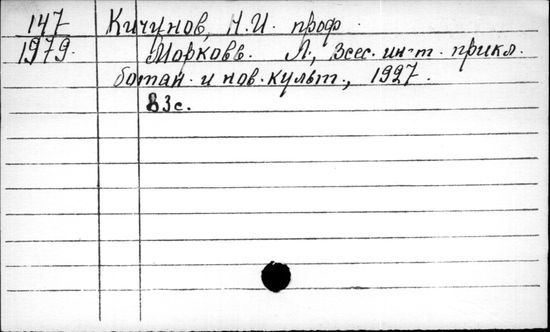 147 Кичунов, Н.И. проф.
1979. Морковь. Л., Всес. ин-т. прикл.
ботан. и нов. культ., 1927.
83с.